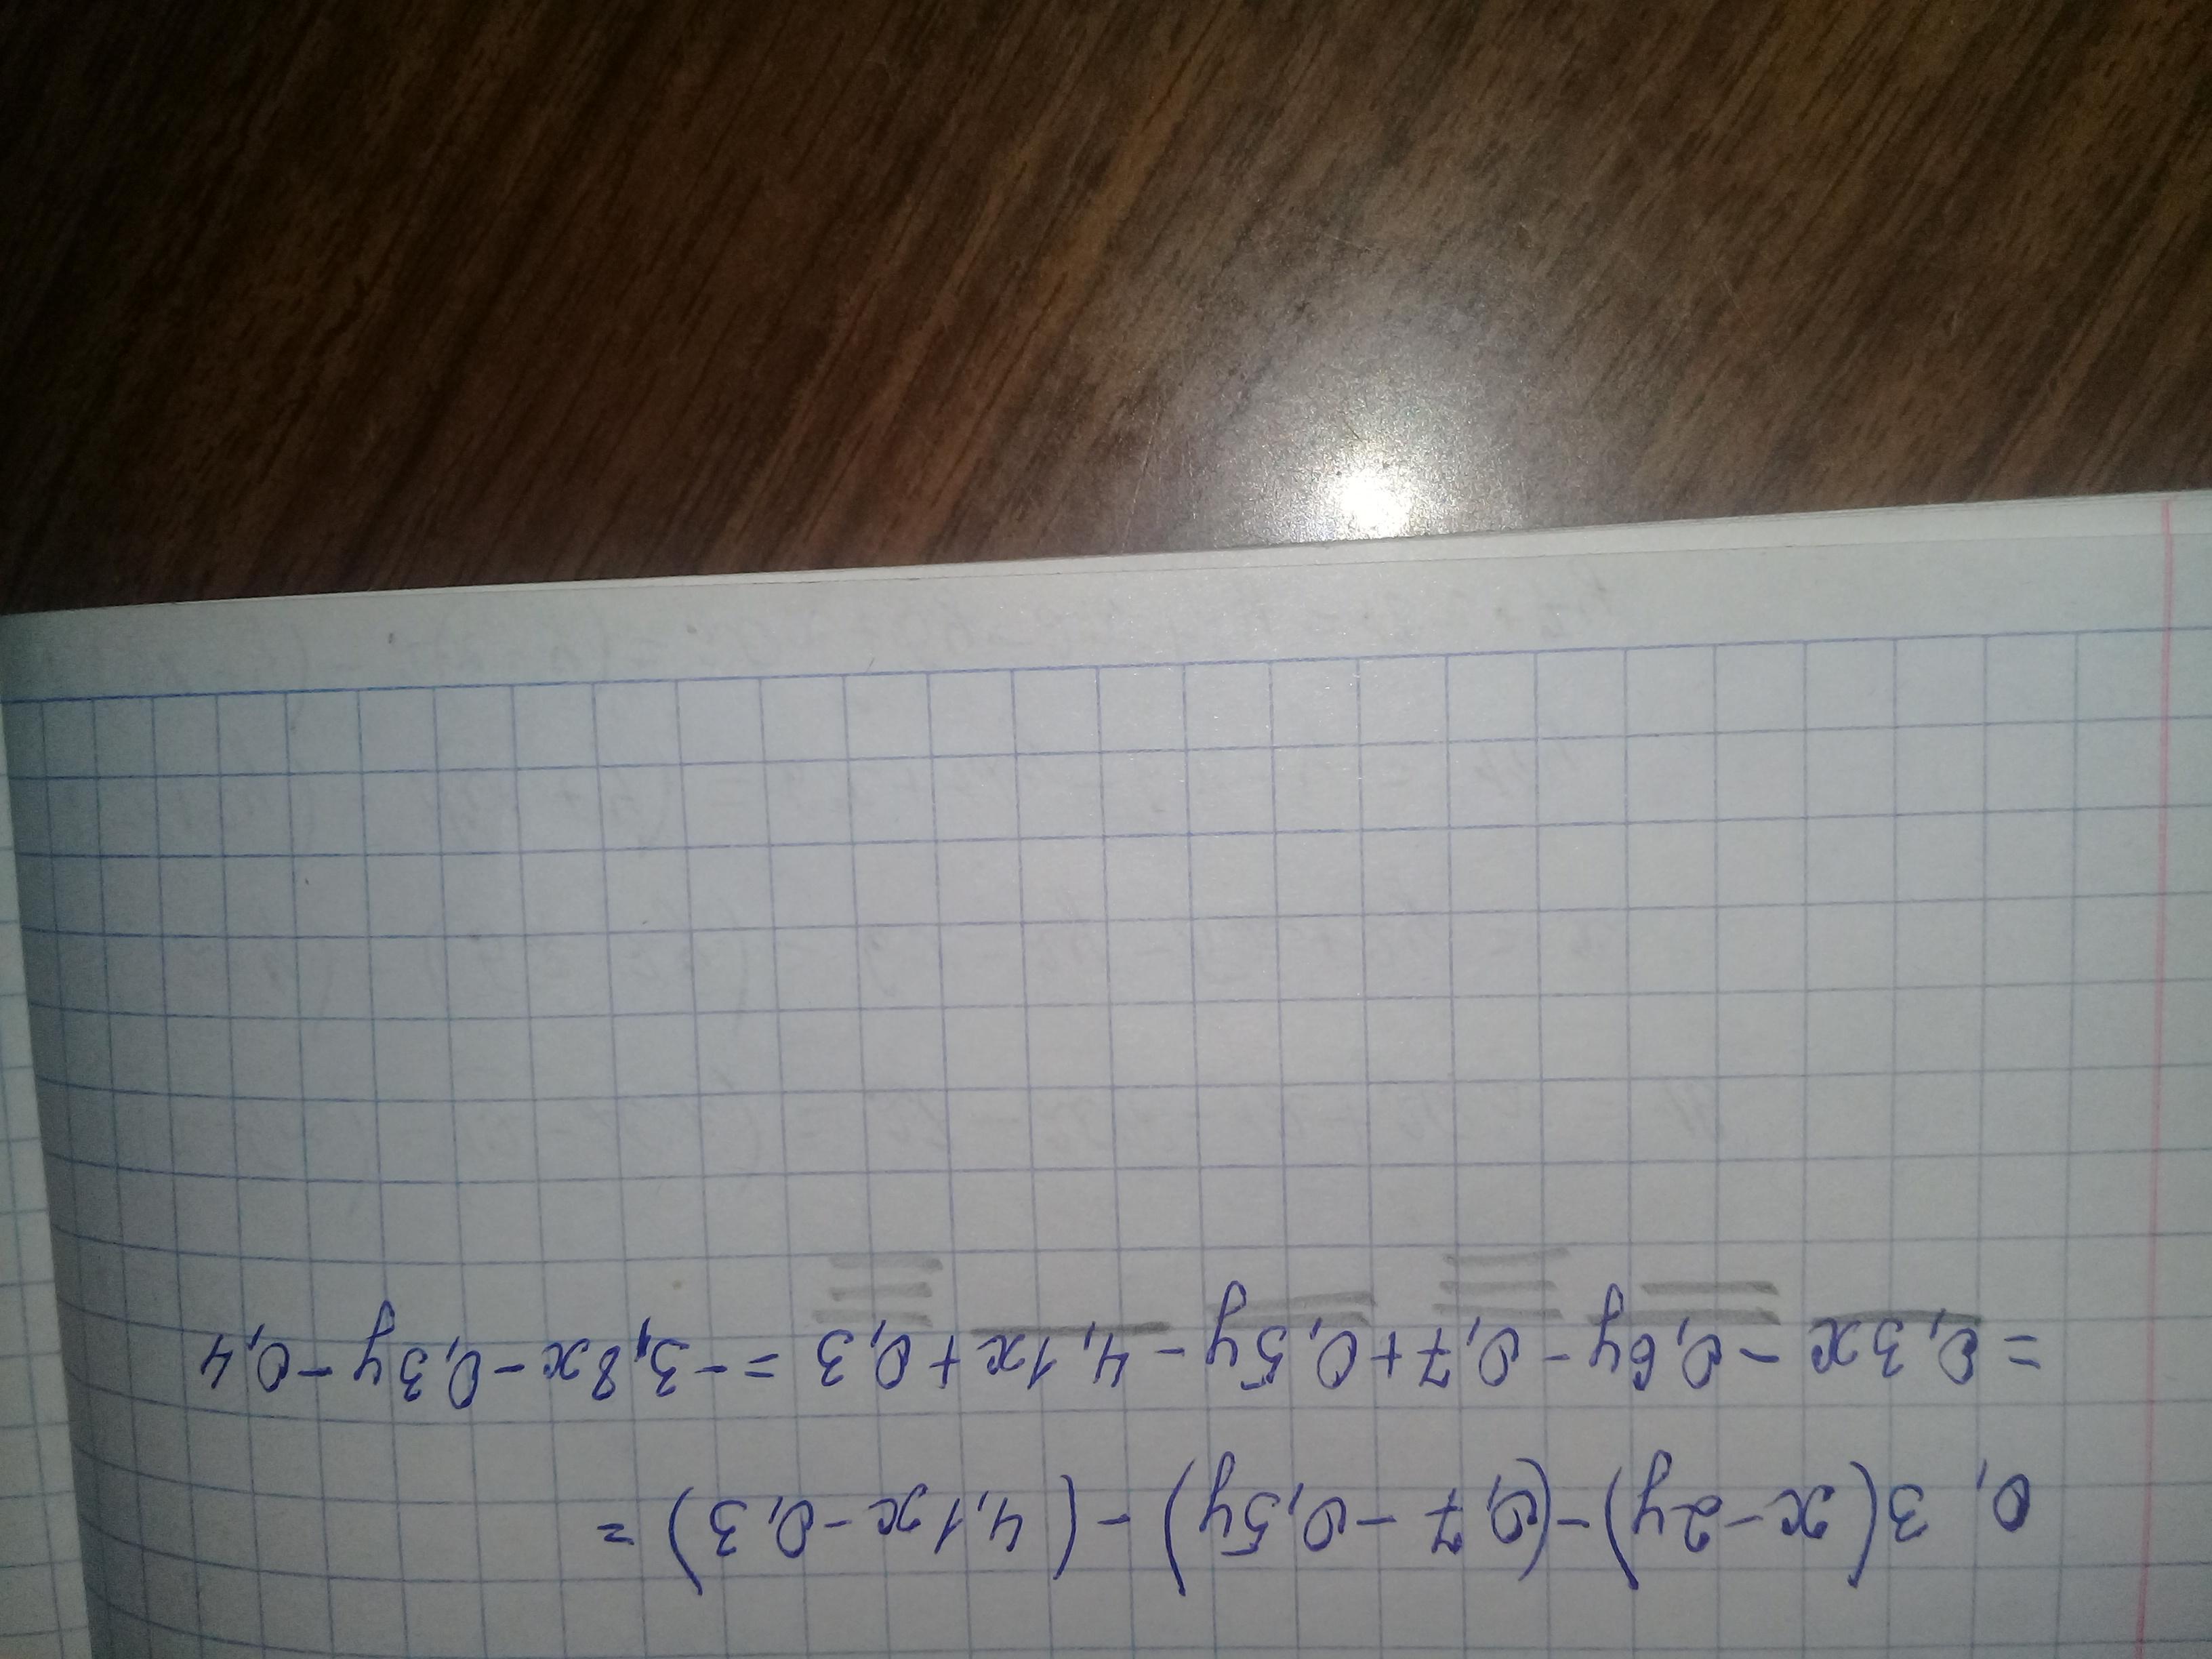 0,3(x-2y)-(0,7-0,5y)-(4,1x-0,3)=
=0,3x-0,6y-0,7+0,5y-4,1x+0,3=-3,8x-0,3y-0,4